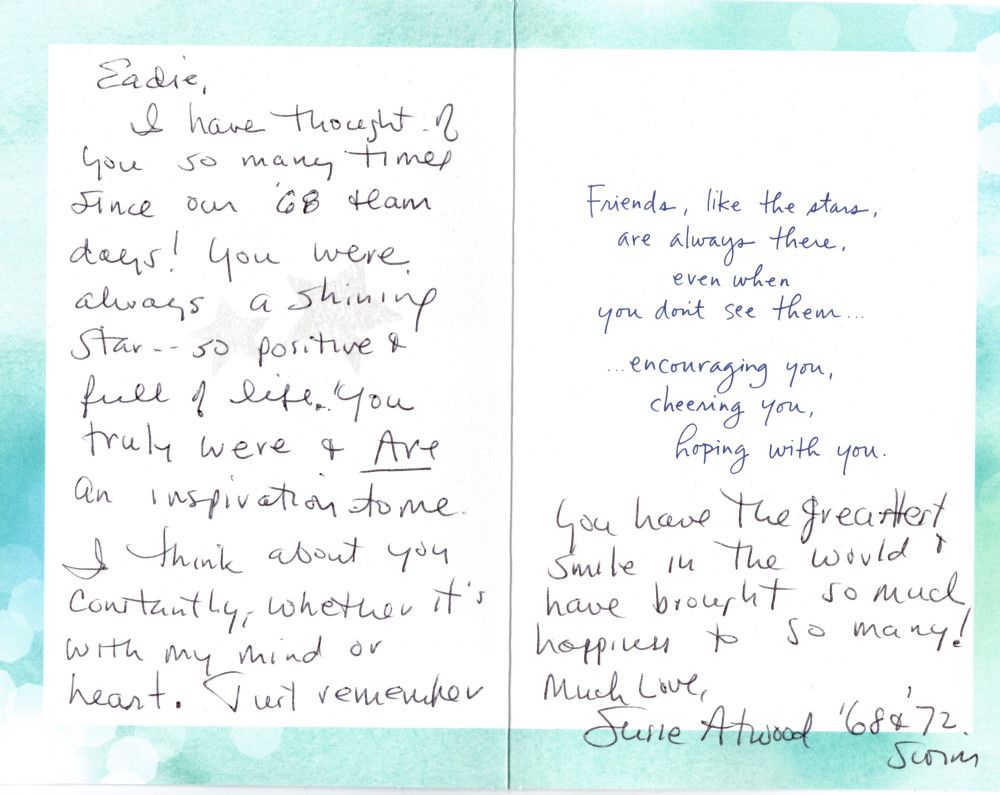 Eadie,
I have thought of
you so many times
since our '68 team
days! You were
always a shining
star -- so positive &
full of life. You
truly were & Are
an inspiration to me.
I think about you
constantly, whether it's
with my mind or
heart. Just remember
Friends, like the stars,
are always there,
even when
you don't see them...
...encouraging you,
cheering you,
hoping with you.
You have the greatest
smile in the would &
have brought so much
happiness to so many!
Much Love,
Susie Atwood '68 & '72
Swim